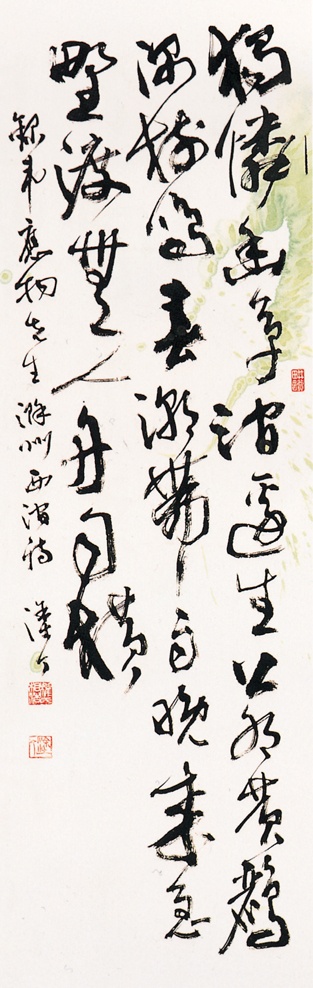 獨憐幽草澗邊生上有黃鸝
深樹鳴春潮帶雨晚來急
野渡無人舟自橫
錄韋應物先生滁州西澗詩